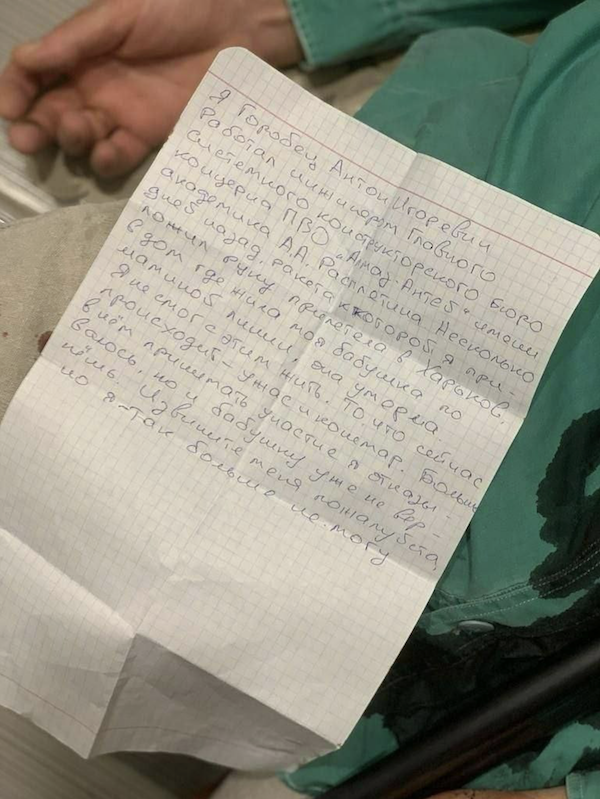 Я Горобец Антон Игоревич
работал инжинером Главного
системного конструкторского бюро
концерна ПВО "Алмаз-Антей" имени
академика А.А. Расплетина. Несколько
дней назад, ракета к которой я при-
ложил руку прилетела в Харьков,
в дом где жила моя бабушка по
маминой линии, она умерла.
Я не смог с этим жить. То, что сейчас
происходит - ужас и кошмар. Больше
в нём принимать участие я отказы-
валось, но и бабушку уже не вер-
нёшь. Извините меня пожалуйста,
но я так больше не могу